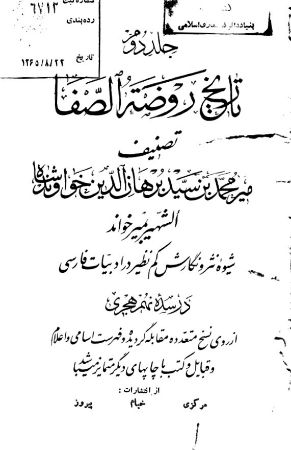 بنیاد دائرةالمعارف اسلامی
شماره ثبت
۶۷۱۳
رده‌بندی
تاریخ
۱۳۶۵/۸/۲۲
جلد دوم
تاریخ روضة الصفا
تصنیف
میر محمد بن سید برهان الدین خواوندشاه
الشهیر بمیر خواند
شیوهٔ نثر و نگارش کم نظیر در ادبیات فارسی
در سدهٔ نهم هجری
از روی نسخ متعدده مقابله گردیده و فهرست اسامی و اعلام
و قبایل و کتب با چاپهای دیگر متمایز میباشد
از انتشارات :
مرکزی خیام پیروز